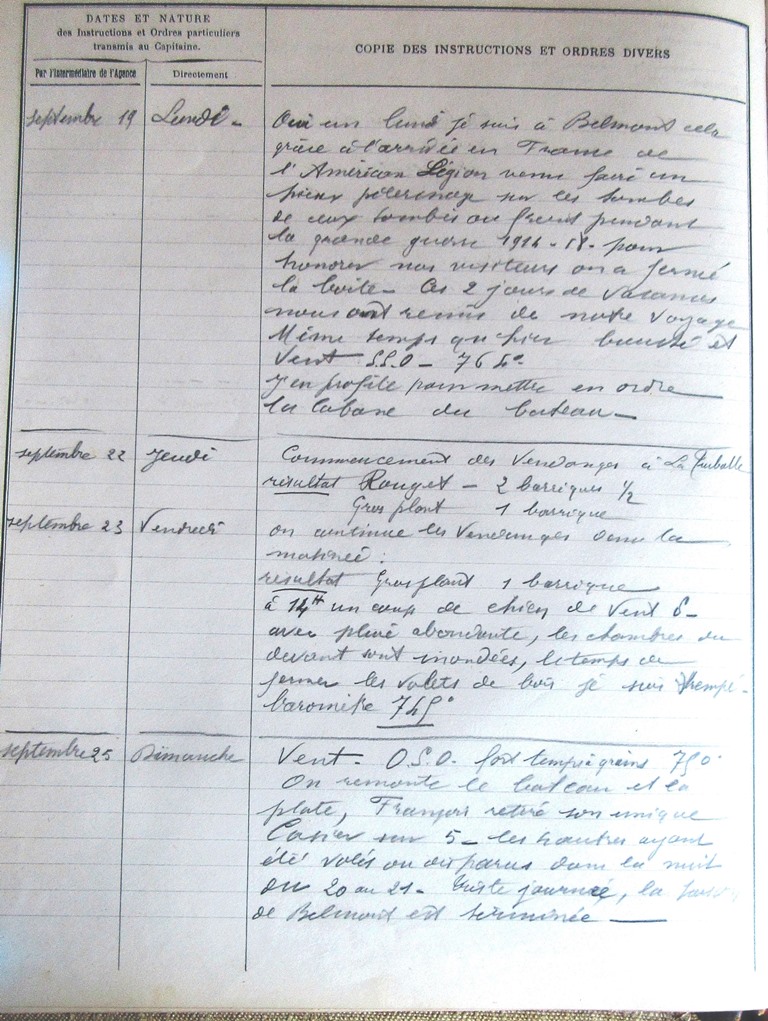 DATES ET NATURE
des Instructions et Ordres particuliers
transmis au Capitaine.
COPIE DES INSTRUCTIONS ET ORDRES DIVERS
Par l'Intermédiaire de l'Agence
Directement
septembre 19 Lundi - Oui un lundi je suis à Belmont cela
grâce à l'arrivée en France de
l'Américan Légion venue faire un
pieux pélerinage sur les tombes
de ceux tombés au front pendant
la grande guerre 1914-18- pour
honorer nos visiteurs on a fermé
la boite - Ces 2 jours de vacances
nous ont remis de notre voyage
Même temps qu'hier et
Vent S.S.O - 765°
J'en profite pour mettre en ordre
la cabane du bateau -
septembre 22 Jeudi Commencement des Vendanges à La Turballe
résultat Rouget - 2 barriques 1/2
Gros plant 1 barrique
septembre 23 Vendredi on continue les Vendanges dans la
matinée :
résultat Gros plant 1 barrique
à 14H un coup de chien de Vent S-
avec pluie abondante, les chambres du
devant sont inondées, le temps de
fermer les volets de bois je suis trempé -
baromètre 745°
septembre 25 Dimanche Vent - O.S.O. fort temps à grains 750°
On remonte le bateau et la
plate, François retire son unique
Casier sur 5 - les autres ayant
été volés ou disparus dans la nuit
du 20 au 21 - triste journée, la saison
de Belmont est terminée